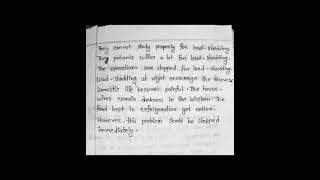 They cannot study properly for load-shedding.
The patients suffer a lot for load-shedding.
The operations are stopped for load-shedding.
Load-shedding at night encourage the thieves.
Domestic life becomes painful. The house-
wives remain darkness in the kitchen. The
food kept in refrigeration get rotten.
However, this problem should be stopped
immediately.